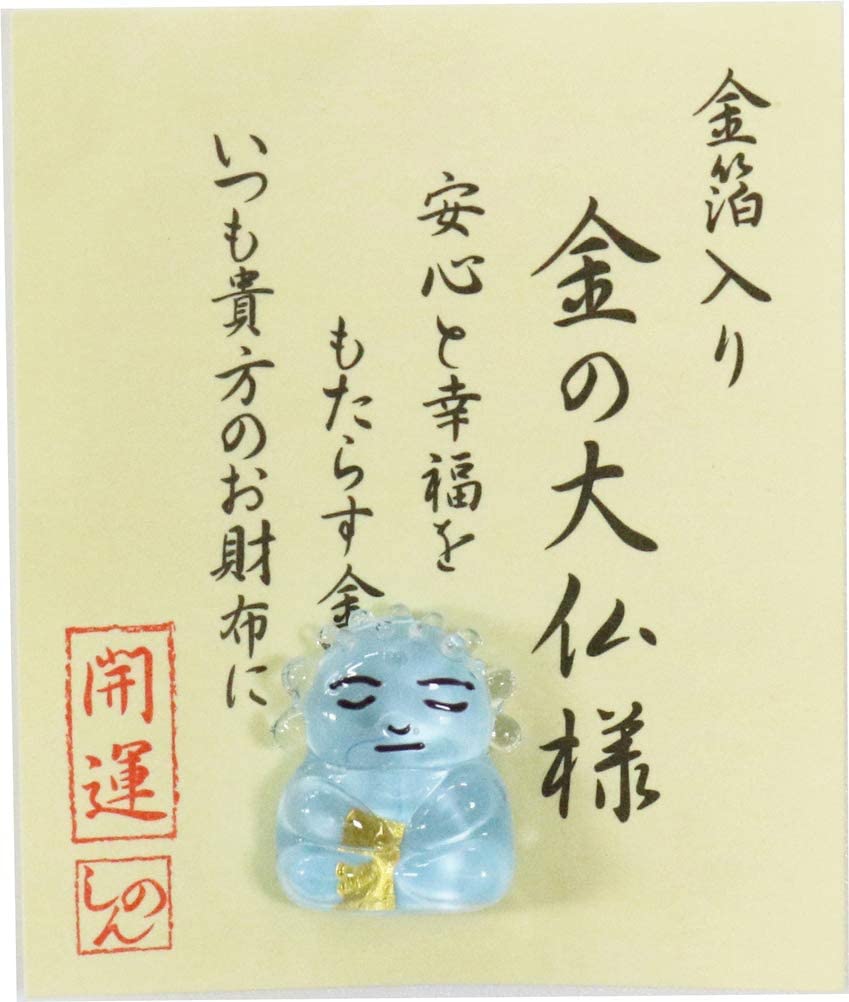 金箔入り
金の大仏様
安心と幸福を
もたらす金
いつも貴方のお財布に
開運
しのん